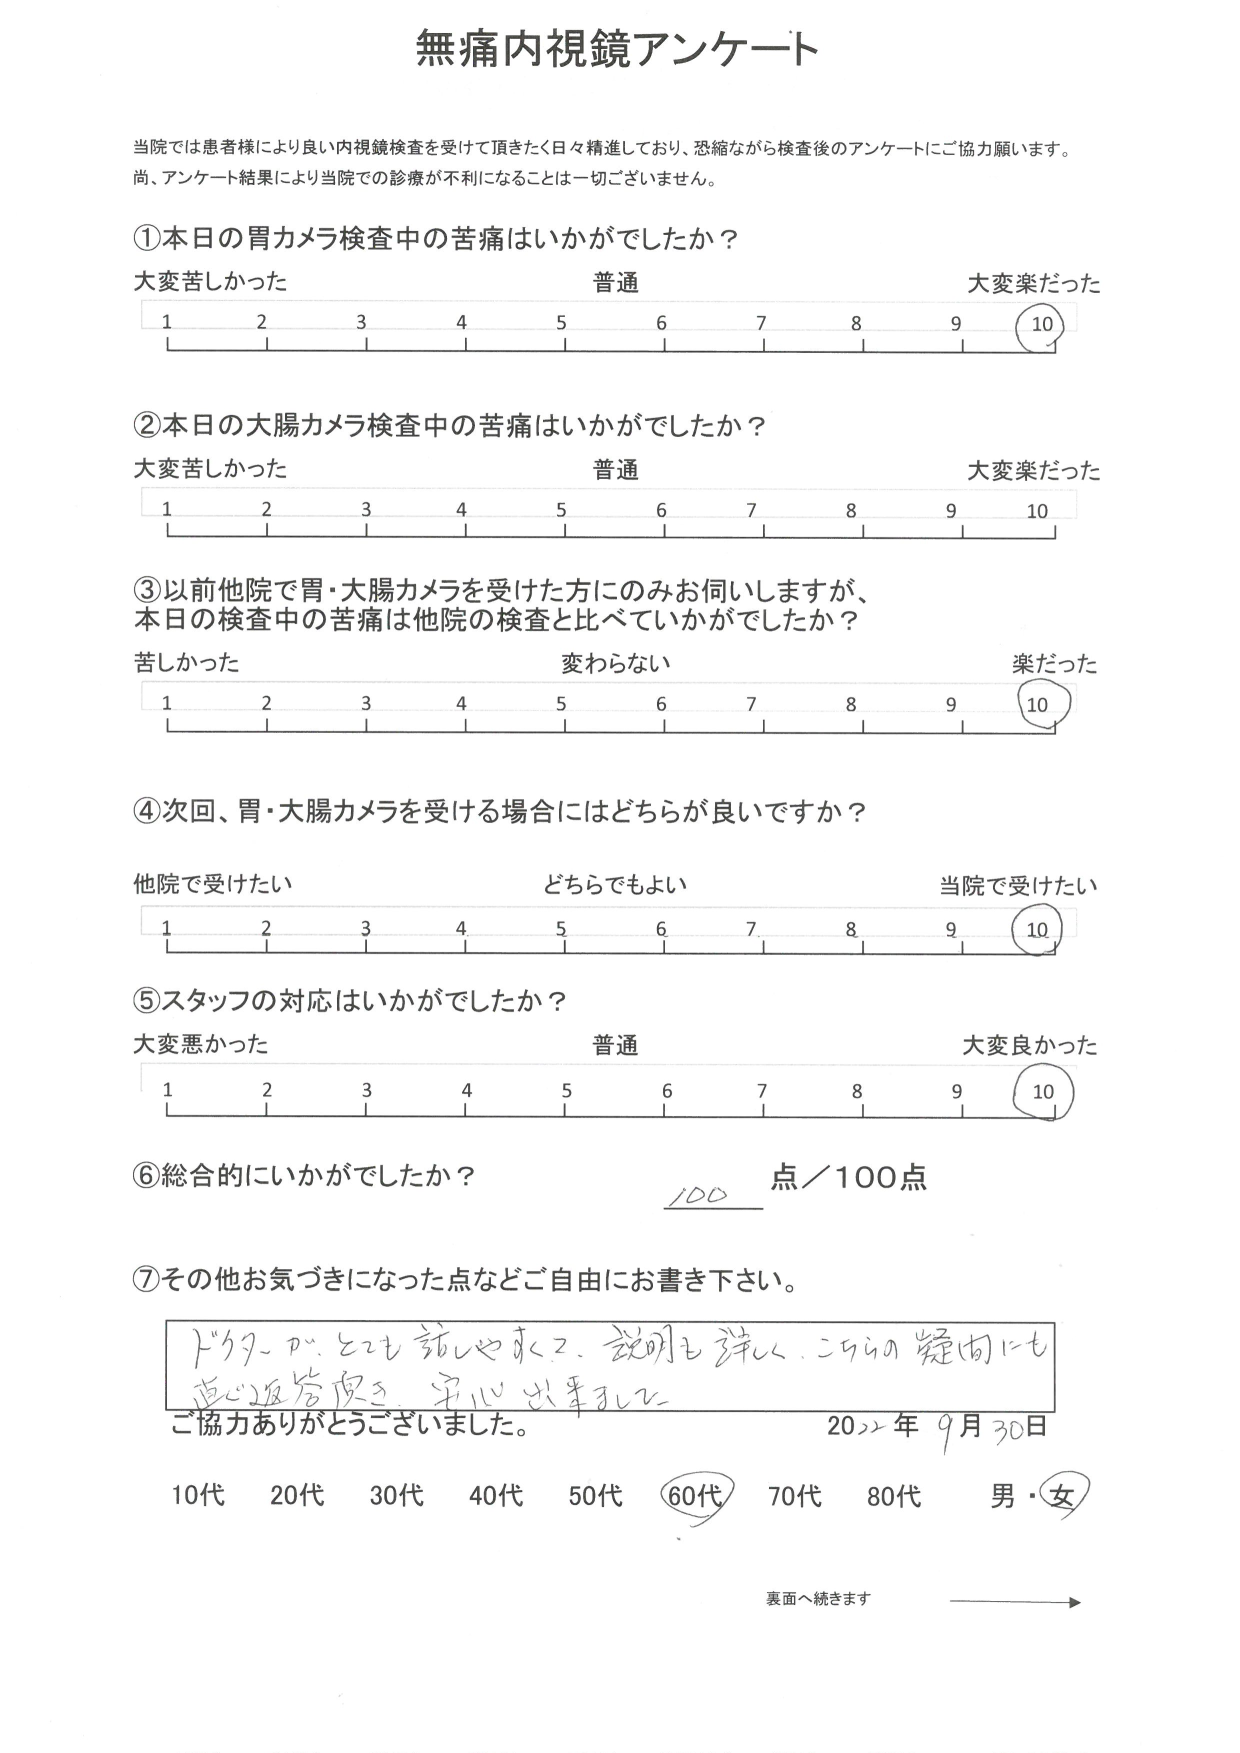 無痛内視鏡アンケート
当院では患者様により良い内視鏡検査を受けて頂きたく日々精進しており、恐縮ながら検査後のアンケートにご協力願います。
尚、アンケート結果により当院での診療が不利になることは一切ございません。
①本日の胃カメラ検査中の苦痛はいかがでしたか？
大変苦しかった 普通 大変楽だった
1 2 3 4 5 6 7 8 9 10
②本日の大腸カメラ検査中の苦痛はいかがでしたか？
大変苦しかった 普通 大変楽だった
1 2 3 4 5 6 7 8 9 10
③以前他院で胃・大腸カメラを受けた方にのみお伺いしますが、
本日の検査中の苦痛は他院の検査と比べていかがでしたか？
苦しかった 変わらない 楽だった
1 2 3 4 5 6 7 8 9 10
④次回、胃・大腸カメラを受ける場合にはどちらが良いですか？
他院で受けたい どちらでもよい 当院で受けたい
1 2 3 4 5 6 7 8 9 10
⑤スタッフの対応はいかがでしたか？
大変悪かった 普通 大変良かった
1 2 3 4 5 6 7 8 9 10
⑥総合的にいかがでしたか？ 100 点／100点
⑦その他お気づきになった点などご自由にお書き下さい。
ドクターが、とても話しやすくて、説明も詳しく、こちらの疑問にも
直ぐ返答頂き、安心出来ました
ご協力ありがとうございました。 2022年 9月 30日
10代 20代 30代 40代 50代 60代 70代 80代 男・女
裏面へ続きます